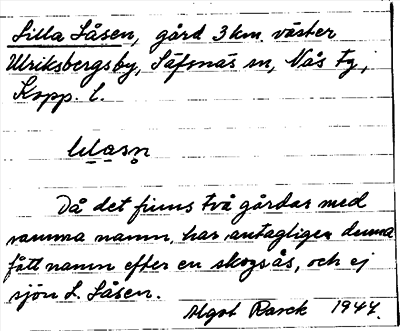 Lilla Låsen, gård 3 km. väster
Ulriksbergsby, Säfsnäs sn, Nås tg,
Kopp. l.
Då det finns två gårdar med
samma namn, har antagligen denna
fått namn efter en skogsås, och ej
sjön L. Låsen.
Algot Rasck 1947.